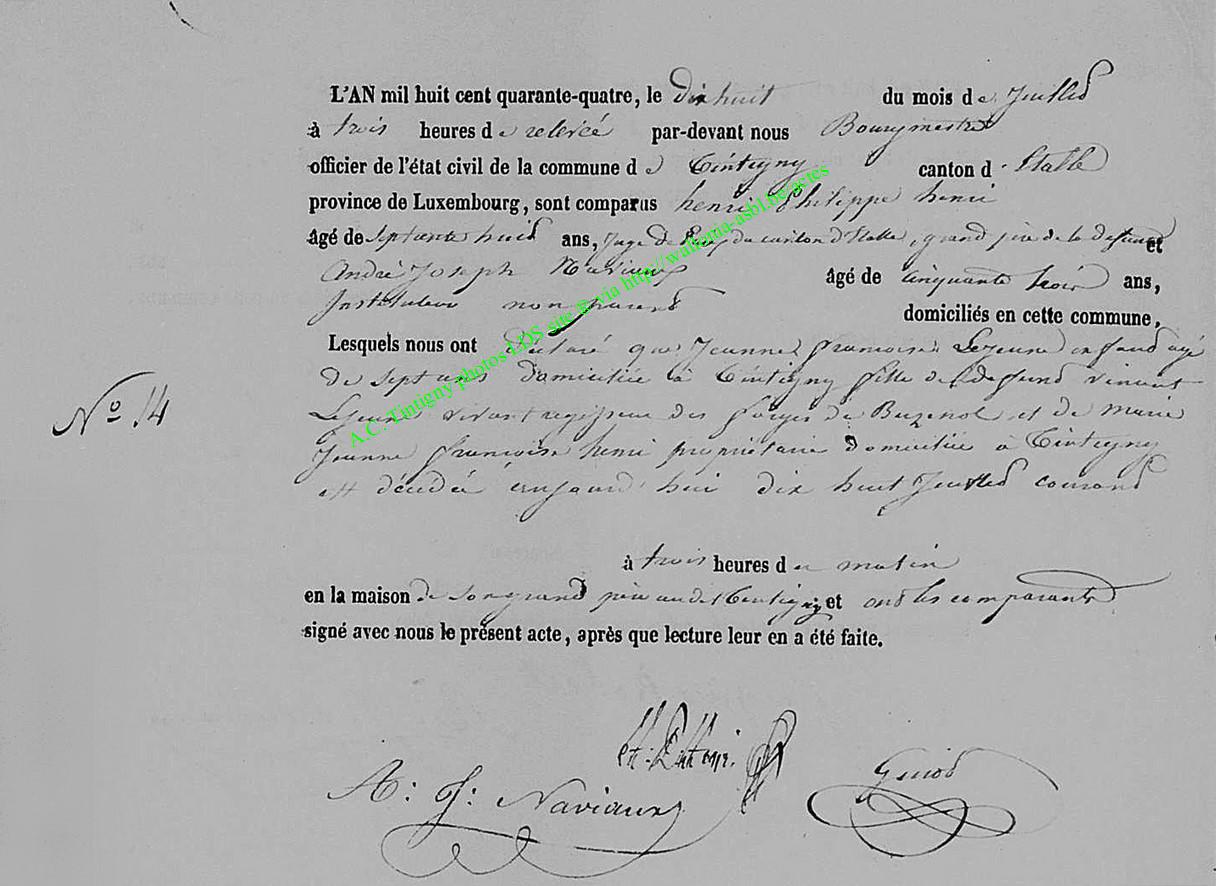 L'AN mil huit cent quarante-quatre, le dix huit du mois de Juillet
à trois heures de relevée par-devant nous Bourgmestre
officier de l'état civil de la commune de Tintigny canton d'Etalle
province de Luxembourg, sont comparus henri Philippe henri
âgé de septante huit ans, Juge de Paix du canton d'Etalle, grand père de la defunte et
André Joseph Naviaux âgé de cinquante trois ans,
Instituteur non parent domiciliés en cette commune,
Lesquels nous ont déclaré que Jeanne françoise Lejeune enfant agé
de sept ans domiciliée à Tintigny fille de defunt vincent
Lejeune vivant regisseur des forges de Buzenol et de marie
Jeanne françoise henri propriétaire domiciliée à Tintigny
N° 14
est décédée aujourd'hui dix huit Juillet courant
à trois heures du matin
en la maison de son grand père audit Tintigny et ont les comparants
signé avec nous le présent acte, après que lecture leur en a été faite.
A: J: Naviaux Guiot
A.C. Tintigny photos LDS site © via http://wallonia-asbl.be/actes